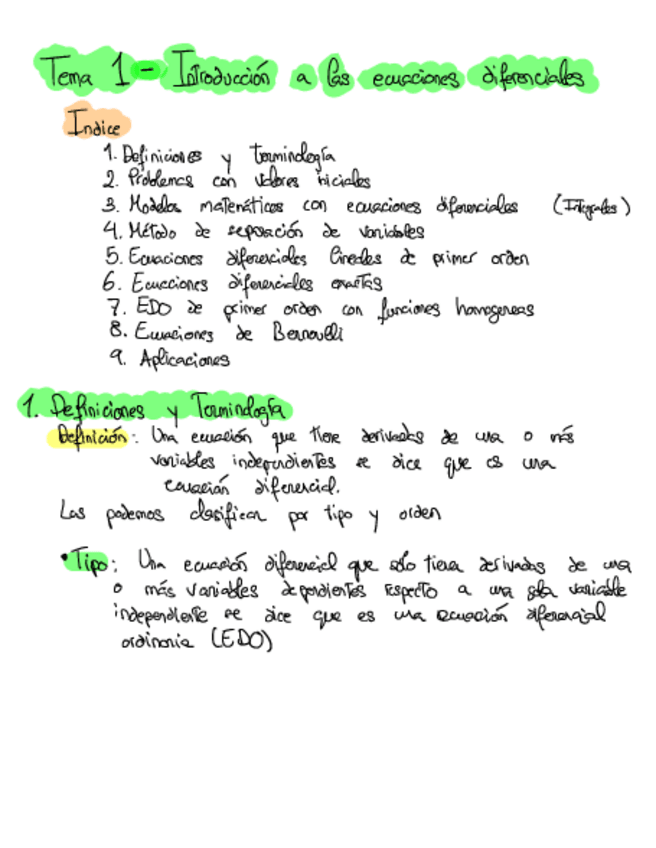 Tema 1 - Introducción a las ecuaciones diferenciales
Indice
1. Definiciones y terminología
2. Problemas con valores iniciales
3. Modelos matemáticos con ecuaciones diferenciales (Integrales)
4. Método de separación de variables
5. Ecuaciones diferenciales lineales de primer orden
6. Ecuaciones diferenciales exactas
7. EDO de primer orden con funciones homogeneas
8. Ecuaciones de Bernoulli
9. Aplicaciones
1. Definiciones y Terminología
Definición: Una ecuación que tiene derivadas de una o más
variables independientes se dice que es una
ecuación diferencial.
Las podemos clasificar por tipo y orden
• Tipo: Una ecuación diferencial que sólo tiene derivadas de una
o más variables dependientes respecto a una sola variable
independiente se dice que es una ecuación diferencial
ordinaria (EDO)